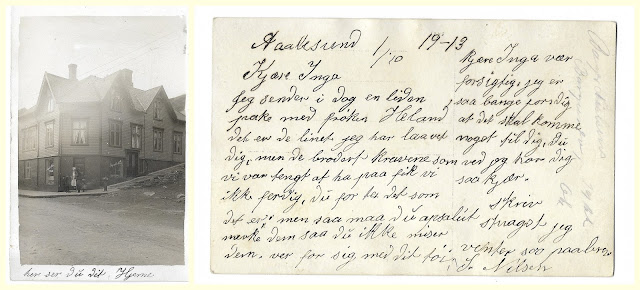 her ser du dit Hjem
Aalesund 1/10 19-13
Kjære Inga
Jeg sender i dag en liden
pake med frøken Heland
det er de linet jeg har laavet
dig, men de broderte kravene som
vi var tengt at ha paa fik vi
ikke ferdig, du før ta det som
det er, men saa maa du absolut
merke dem saa du ikke miser
dem. ver for sig med dit tøi,
kjære Inga vær
forsigtig, jeg er
saa bange for dig
at det skal komme
noget til dig, du
ved jeg har dig
saa kjær.
skriv
stragst jeg
venter saa paa brev.
J. Nilsen